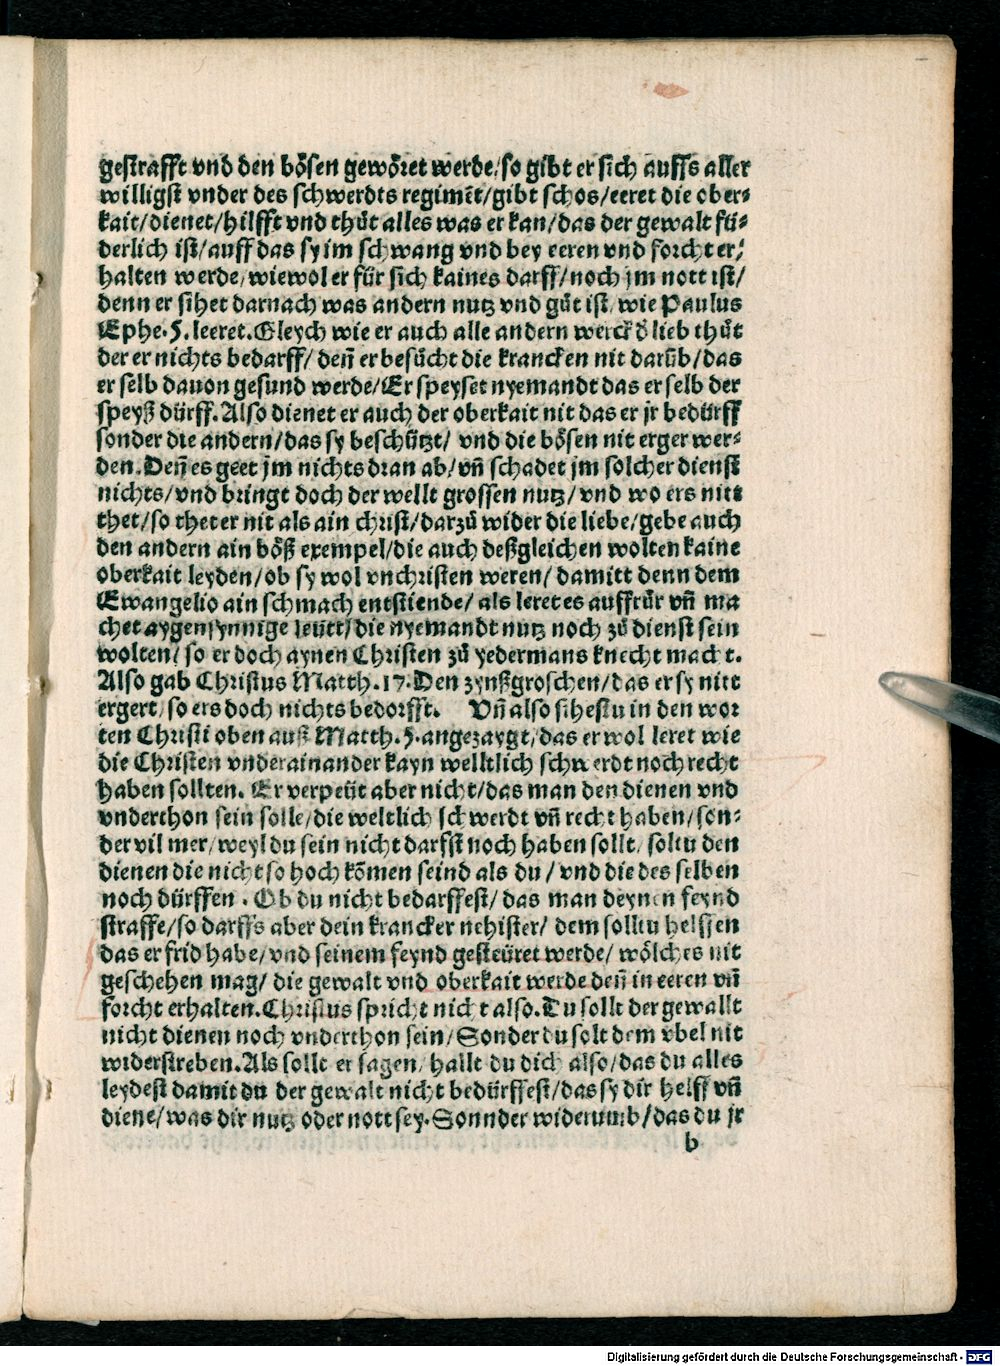 gestrafft vnd den bösen gewöret werde/ so gibt er sich auffs aller
willigst vnder des schwerdts regimēt/ gibt schos/ eeret die ober⸗
kait/ dienet/ hilfft vnd thůt alles was er kan/ das der gewalt fü⸗
derlich ist/ auff das sy im schwang vnd bey eeren vnd forcht er⸗
halten werde/ wiewol er für sich kaines darff/ noch jm nott ist/
denn er sihet darnach was andern nutz vnd gůt ist/ wie Paulus
Ephe. 5. leeret. Gleych wie er auch alle andern werck d̕ lieb thůt
der er nichts bedarff/ deñ er besůcht die krancken nit darůb/ das
er selb dauon gesund werde/ Er speyset nyemandt das er selb der
speyß dürff. Also dienet er auch der oberkait nit das er jr bedürff
sonder die andern/ das sy beschützt/ vnd die bösen nit erger wer⸗
den. Deñ es geet jm nichts dran ab/ vñ schadet jm solcher dienst
nichts/ vnd bringt doch der wellt grossen nutz/ vnd wo ers nitt
thet/ so thet er nit als ain christ/ darzů wider die liebe/ gebe auch
den andern ain böß exempel/ die auch deßgleichen wolten kaine
oberkait leyden/ ob sy wol vnchristen weren/ damitt denn dem
Ewangelio ain schmach entstiende/ als leret es auffrůr vñ ma
chet aygensynnige leütt/ die nyemandt nutz noch zů dienst sein
wolten/ so er doch aynen Christen zů yedermans knecht macht.
Also gab Christus Matth. 17. Den zynßgroschen/ das er sy nitt
ergert/ so ers doch nichts bedorfft. Vñ also sihestu in den wor
ten Christi oben auß Matth. 5. angezaygt/ das er wol leret wie
die Christen vnderainander kayn welltlich schwerdt noch recht
haben sollten. Er verpeüt aber nicht/ das man den dienen vnd
vnderthon sein solle/ die weltlich schwerdt vñ recht haben/ son⸗
der vil mer/ weyl du sein nicht darfst noch haben sollt/ soltu den
dienen die nicht so hoch kōmen seind als du/ vnd die des selben
noch dürffen. Ob du nicht bedarffest/ das man deynen feynd
straffe/ so darffs aber dein krancker nehister/ dem solltu helffen
das er frid habe/ vnd seinem feynd gesteüret werde/ wölches nit
geschehen mag/ die gewalt vnd oberkait werde deñ in eeren vñ
forcht erhalten. Christus spricht nicht also. Du sollt der gewallt
nicht dienen noch vnderthon sein/ Sonder du solt dem vbel nit
widerstreben. Als sollt er sagen/ hallt du dich also/ das du alles
leydest damit du der gewalt nicht bedürffest/ das sy dir helff vñ
diene/ was dir nutz oder nott sey. Sonnder widerumb/ das du jr
b
Digitalisierung gefördert durch die Deutsche Forschungsgemeinschaft - DFG